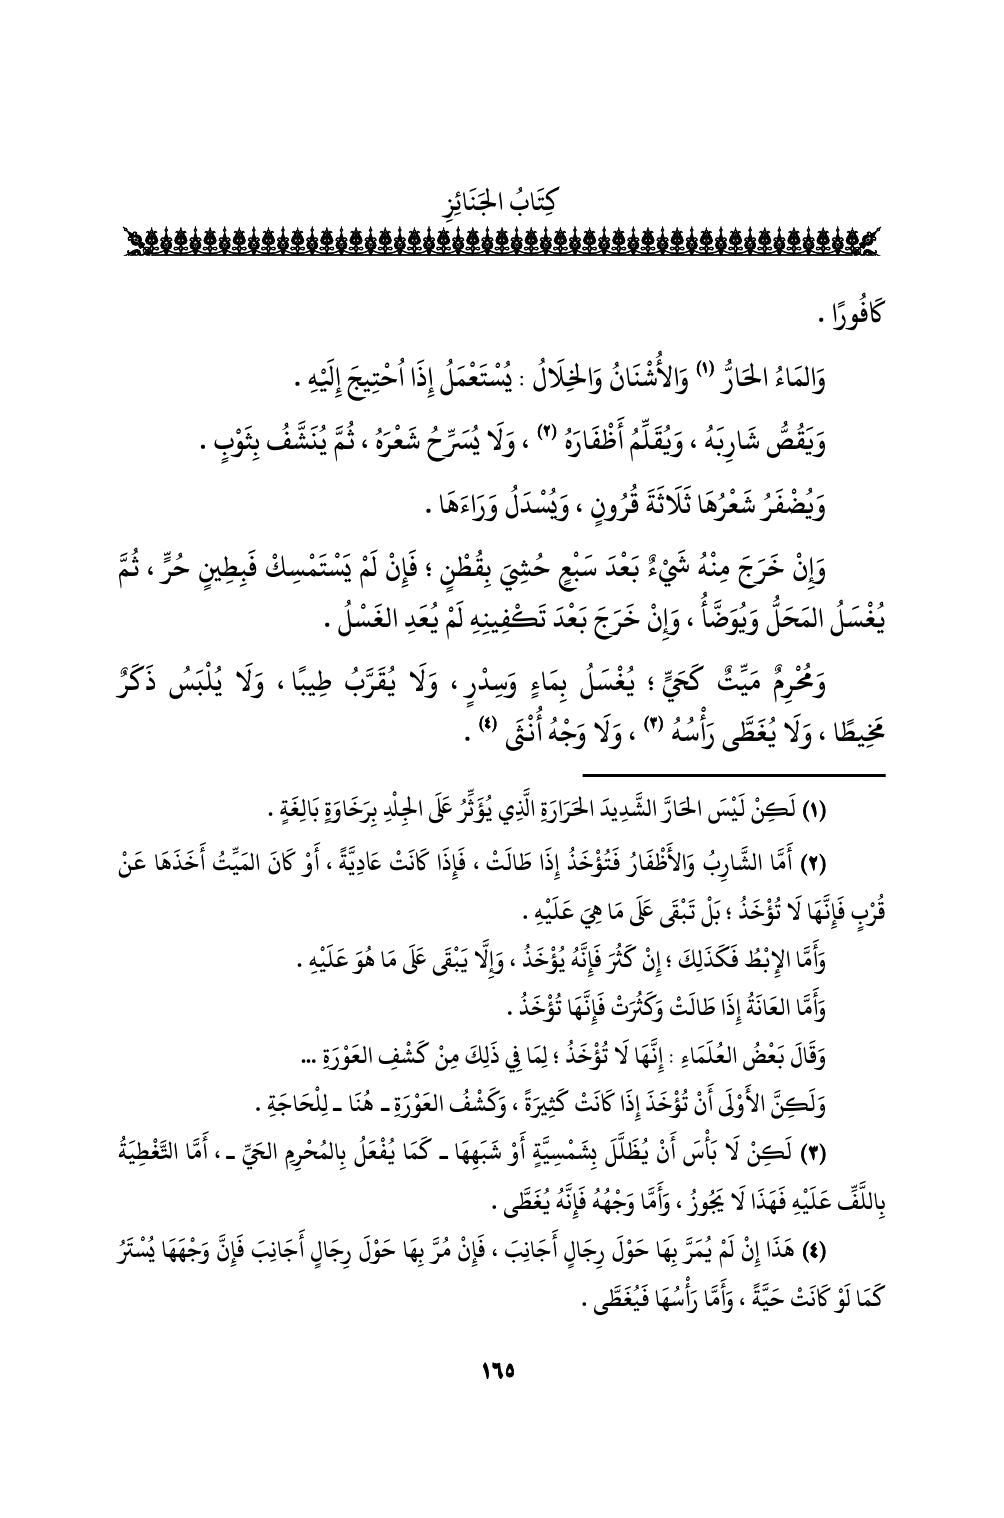 كِتَابُ الجَنَائِزِ
كَافُورًا .
وَالمَاءُ الحَارُّ (١) وَالأُشْنَانُ وَالخِلَالُ : يُسْتَعْمَلُ إِذَا اُحْتِيجَ إِلَيْهِ .
وَيَقُصُّ شَارِبَهُ ، وَيُقَلِّمُ أَظْفَارَهُ (٢) ، وَلَا يُسَرِّحُ شَعْرَهُ ، ثُمَّ يُنَشَّفُ بِثَوْبٍ .
وَيُضْفَرُ شَعْرُهَا ثَلَاثَةَ قُرُونٍ ، وَيُسْدَلُ وَرَاءَهَا .
وَإِنْ خَرَجَ مِنْهُ شَيْءٌ بَعْدَ سَبْعٍ حُشِيَ بِقُطْنٍ ؛ فَإِنْ لَمْ يَسْتَمْسِكْ فَبِطِينٍ حُرٍّ ، ثُمَّ
يُغْسَلُ المَحَلُّ وَيُوَضَّأُ ، وَإِنْ خَرَجَ بَعْدَ تَكْفِينِهِ لَمْ يُعَدِ الغَسْلُ .
وَمُحْرِمٌ مَيِّتٌ كَحَيٍّ ؛ يُغْسَلُ بِمَاءٍ وَسِدْرٍ ، وَلَا يُقَرَّبُ طِيبًا ، وَلَا يُلْبَسُ ذَكَرٌ
مَخِيطًا ، وَلَا يُغَطَّى رَأْسُهُ (٣) ، وَلَا وَجْهُ أُنْثَى (٤) .
(١) لَكِنْ لَيْسَ الحَارَّ الشَّدِيدَ الحَرَارَةِ الَّذِي يُؤَثِّرُ عَلَى الجِلْدِ بِرَخَاوَةٍ بَالِغَةٍ .
(٢) أَمَّا الشَّارِبُ وَالأَظْفَارُ فَتُؤْخَذُ إِذَا طَالَتْ ، فَإِذَا كَانَتْ عَادِيَّةً ، أَوْ كَانَ المَيِّتُ أَخَذَهَا عَنْ
قُرْبٍ فَإِنَّهَا لَا تُؤْخَذُ ؛ بَلْ تَبْقَى عَلَى مَا هِيَ عَلَيْهِ .
وَأَمَّا الإِبْطُ فَكَذَلِكَ ؛ إِنْ كَثُرَ فَإِنَّهُ يُؤْخَذُ ، وَإِلَّا يَبْقَى عَلَى مَا هُوَ عَلَيْهِ .
وَأَمَّا العَانَةُ إِذَا طَالَتْ وَكَثُرَتْ فَإِنَّهَا تُؤْخَذُ .
وَقَالَ بَعْضُ العُلَمَاءِ : إِنَّهَا لَا تُؤْخَذُ ؛ لِمَا فِي ذَلِكَ مِنْ كَشْفِ العَوْرَةِ ...
وَلَكِنَّ الأَوْلَى أَنْ تُؤْخَذَ إِذَا كَانَتْ كَثِيرَةً ، وَكَشْفُ العَوْرَةِ ـ هُنَا ـ لِلْحَاجَةِ .
(٣) لَكِنْ لَا بَأْسَ أَنْ يُظَلَّلَ بِشَمْسِيَّةٍ أَوْ شَبَهِهَا ـ كَمَا يُفْعَلُ بِالمُحْرِمِ الحَيِّ ـ ، أَمَّا التَّغْطِيَةُ
بِاللَّفِّ عَلَيْهِ فَهَذَا لَا يَجُوزُ ، وَأَمَّا وَجْهُهُ فَإِنَّهُ يُغَطَّى .
(٤) هَذَا إِنْ لَمْ يُمَرَّ بِهَا حَوْلَ رِجَالٍ أَجَانِبَ ، فَإِنْ مُرَّ بِهَا حَوْلَ رِجَالٍ أَجَانِبَ فَإِنَّ وَجْهَهَا يُسْتَرُ
كَمَا لَوْ كَانَتْ حَيَّةً ، وَأَمَّا رَأْسُهَا فَيُغَطَّى .
١٦٥